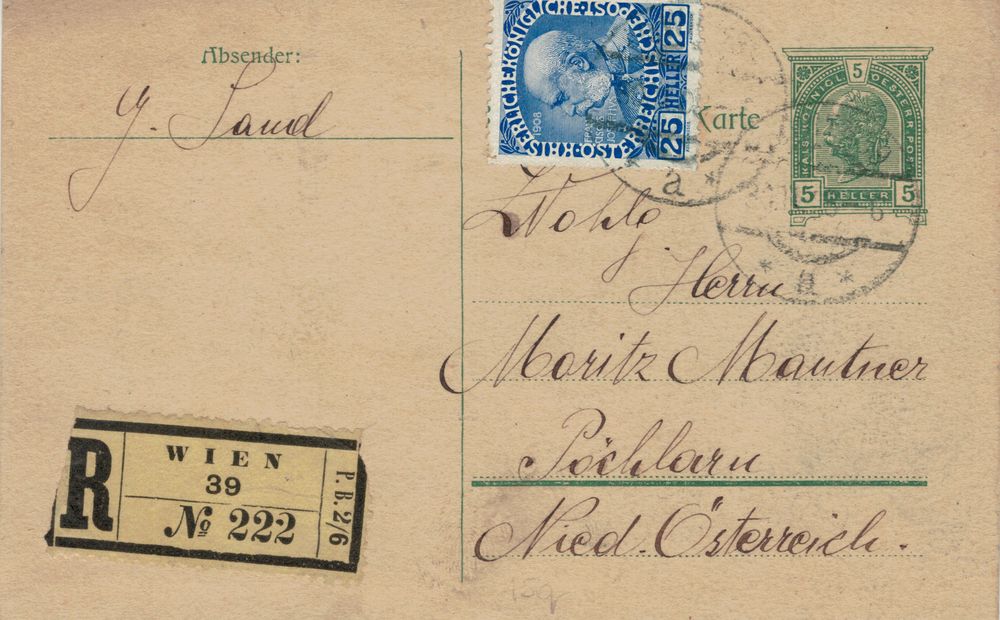 Absender:
J. Sand
KAISERLICHE KÖNIGLICHE ÖSTERREICHISCHE POST
25
HELLER
25
1908
Karte
5
KAIS. KOENIGL. OESTERR. POST
5 HELLER 5
a
a
Wohlg
Herrn
Moritz Mautner
Pöchlarn
Nied. Österreich.
R
WIEN
39
No 222
P. B. 2/6